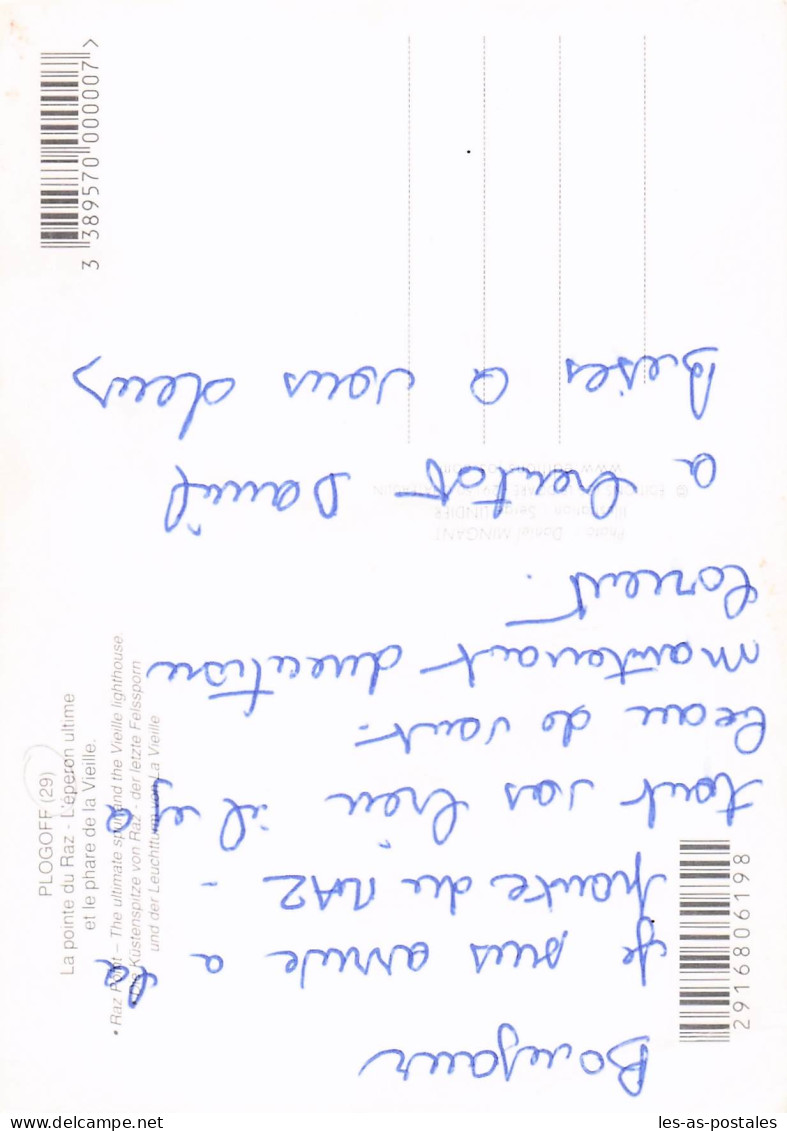 Bonejour
je suis arrive a la
pointe du RAZ -
tout vas bien il y a
beau de vent.
maintenant direction
Lorient.
a bientot Daniel
Bises a vous deux
PLOGOFF (29)
La pointe du Raz - L'éperon ultime
et le phare de la Vieille.
• Raz Point – The ultimate spur and the Vieille lighthouse.
Die Küstenspitze von Raz - der letzte Felssporn
und der Leuchtturm von La Vieille
Photo : Daniel MINGANT
3 389570 000007 >
2916806198
les-as-postales.com